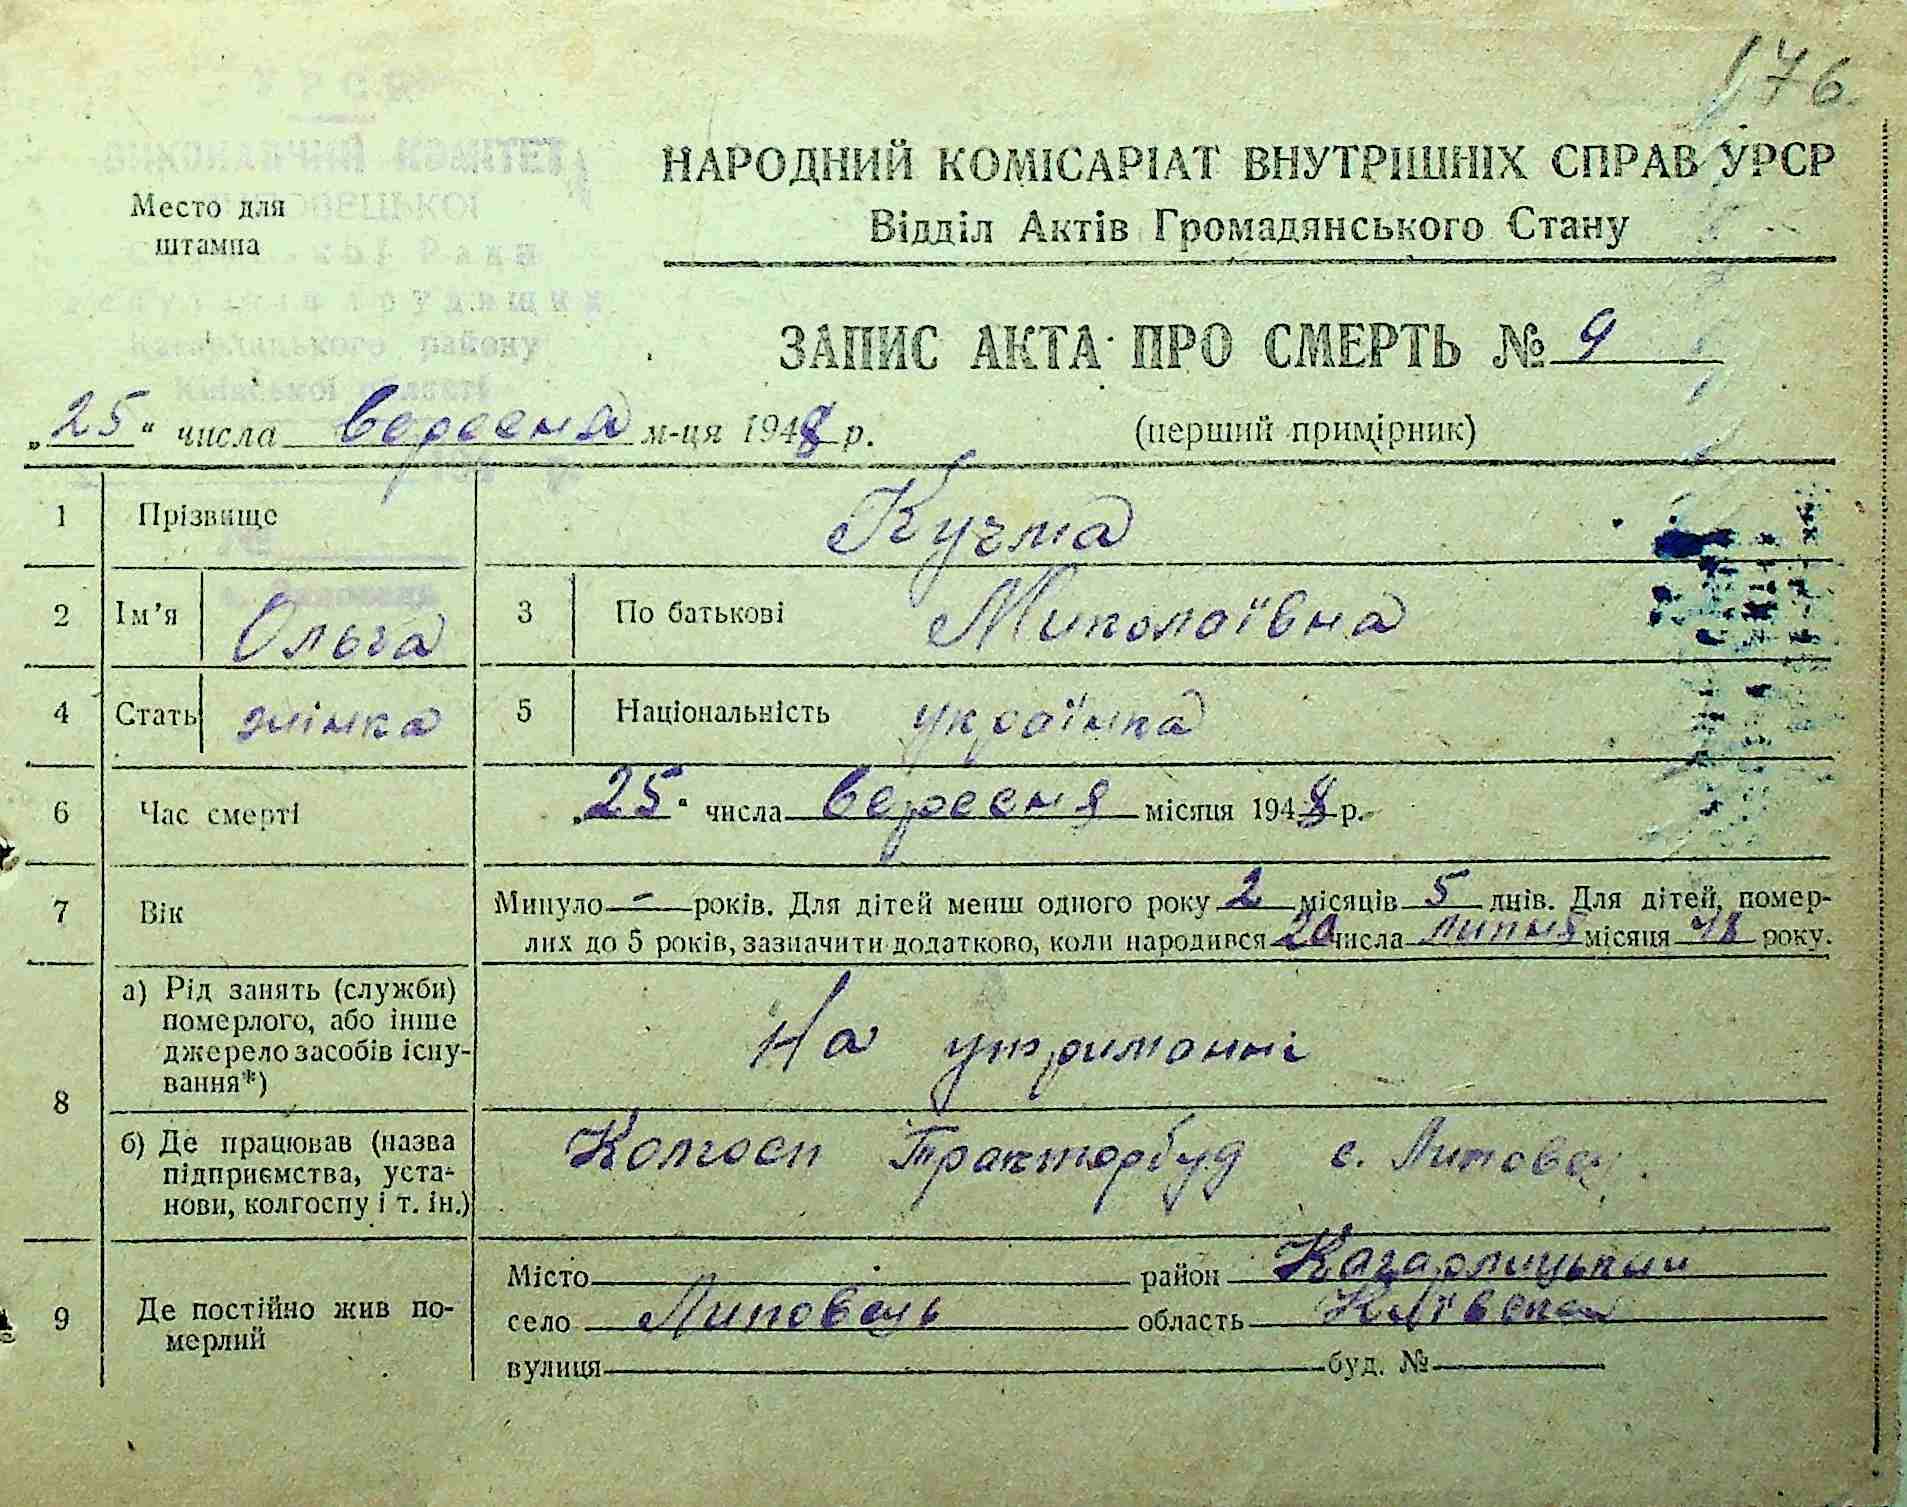 176
УРСР
ВИКОНАВЧИЙ КОМІТЕТ
НАРОДНИЙ КОМІСАРІАТ ВНУТРІШНІХ СПРАВ УРСР
Место для
штампа
Відділ Актів Громадянського Стану
Кагарлицького району
Київської області
ЗАПИС АКТА ПРО СМЕРТЬ № 9
„25“ числа вересня м-ця 1948 р. (перший примірник)
1 Прізвище Кучма
2 Ім'я Ольга 3 По батькові Миколаївна
4 Стать жінка 5 Національність українка
6 Час смерті „25“ числа вересня місяця 1948 р.
7 Вік Минуло — років. Для дітей менш одного року 2 місяців 5 днів. Для дітей, помер-
лих до 5 років, зазначити додатково, коли народився 20 числа липня місяця 48 року.
8 а) Рід занять (служби)
померлого, або інше
джерело засобів існу-
вання*)
На утриманні
б) Де працював (назва
підприємства, уста-
нови, колгоспу і т. ін.)
Колгосп Тракторбуд с. Липовец
9 Де постійно жив по-
мерлий
Місто район Кагарлицький
село Липовець область Київська
вулиця буд. №